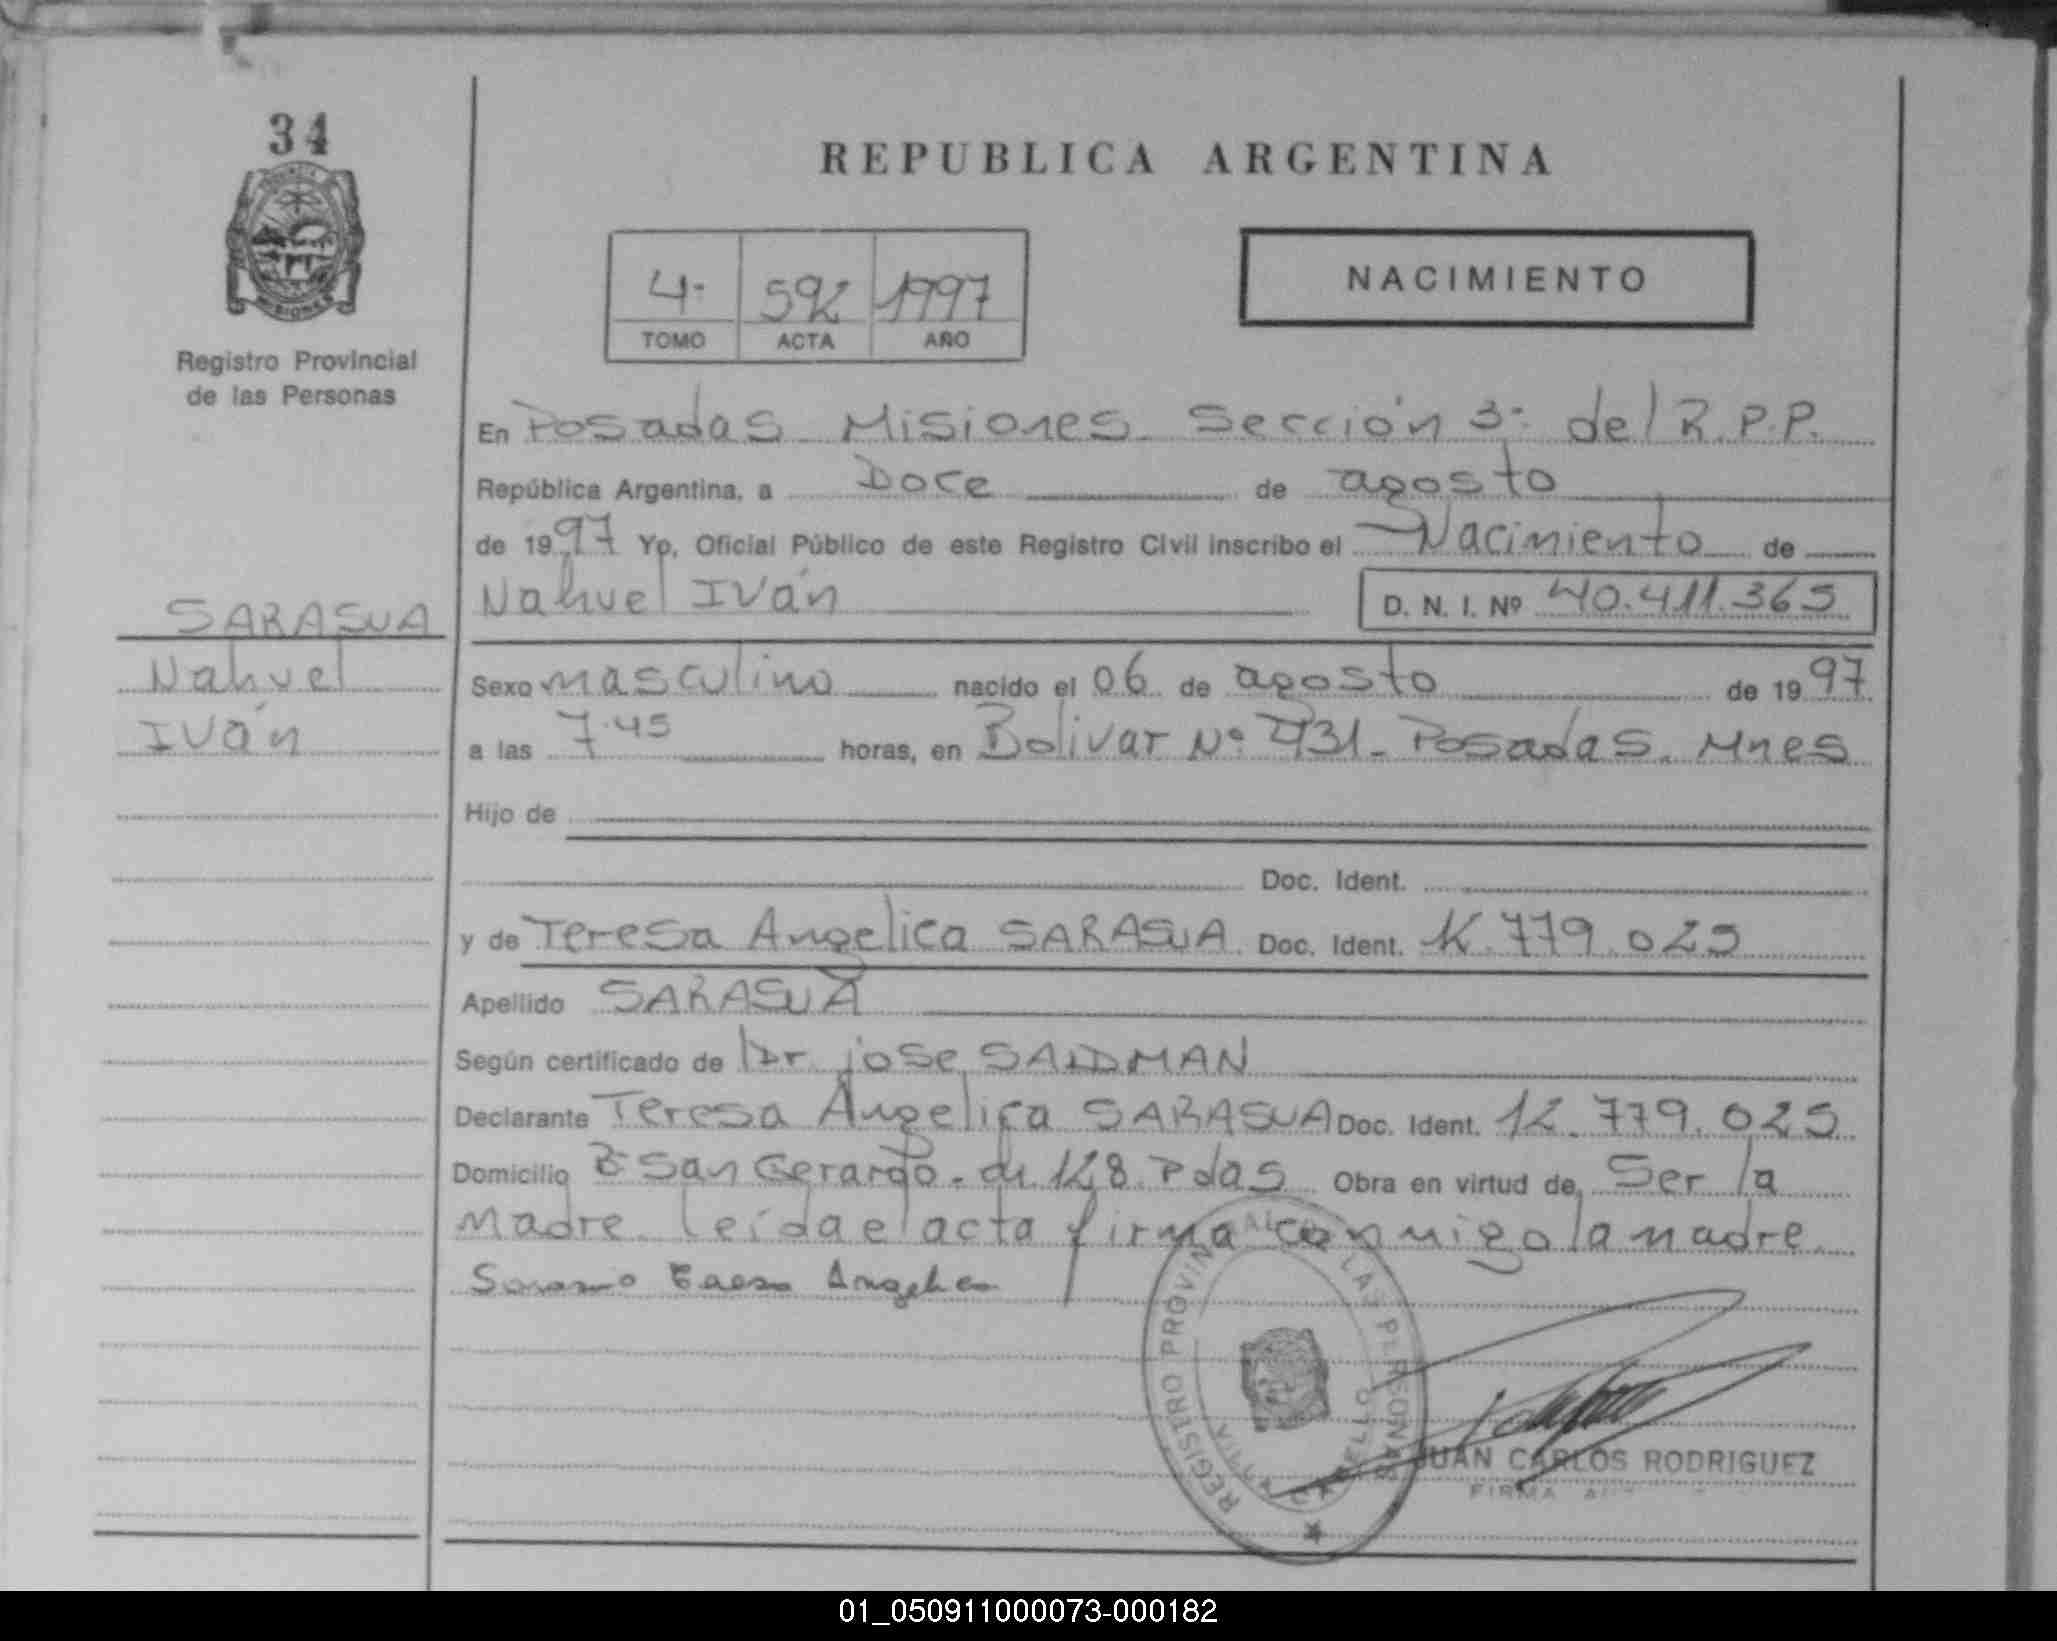 34
REPUBLICA ARGENTINA
4- 592 1997
TOMO ACTA AÑO
NACIMIENTO
Registro Provincial
de las Personas
En Posadas Misiones. Sección 3- del R.P.P.
República Argentina, a Doce de agosto
de 1997 Yo, Oficial Público de este Registro Civil inscribo el Nacimiento de
Nahuel Iván D. N. I. Nº 40.411.365
SARASUA
Nahuel
Iván
Sexo masculino nacido el 06 de agosto de 1997
a las 7.45 horas, en Bolivar Nº 731- Posadas. Mnes
Hijo de
Doc. Ident.
y de Teresa Angelica SARASUA Doc. Ident. 12.779.025
Apellido SARASUA
Según certificado de Dr. jose SALDMAN
Declarante Teresa Angelica SARASUA Doc. Ident. 12.779.025
Domicilio Bº San Gerardo. ch. 128. Pdas Obra en virtud de Ser la
Madre. leída el acta firma conmigo la madre.
Angelica
REGISTRO PROVINCIAL DE LAS PERSONAS
JUAN CARLOS RODRIGUEZ
FIRMA
01_050911000073-000182